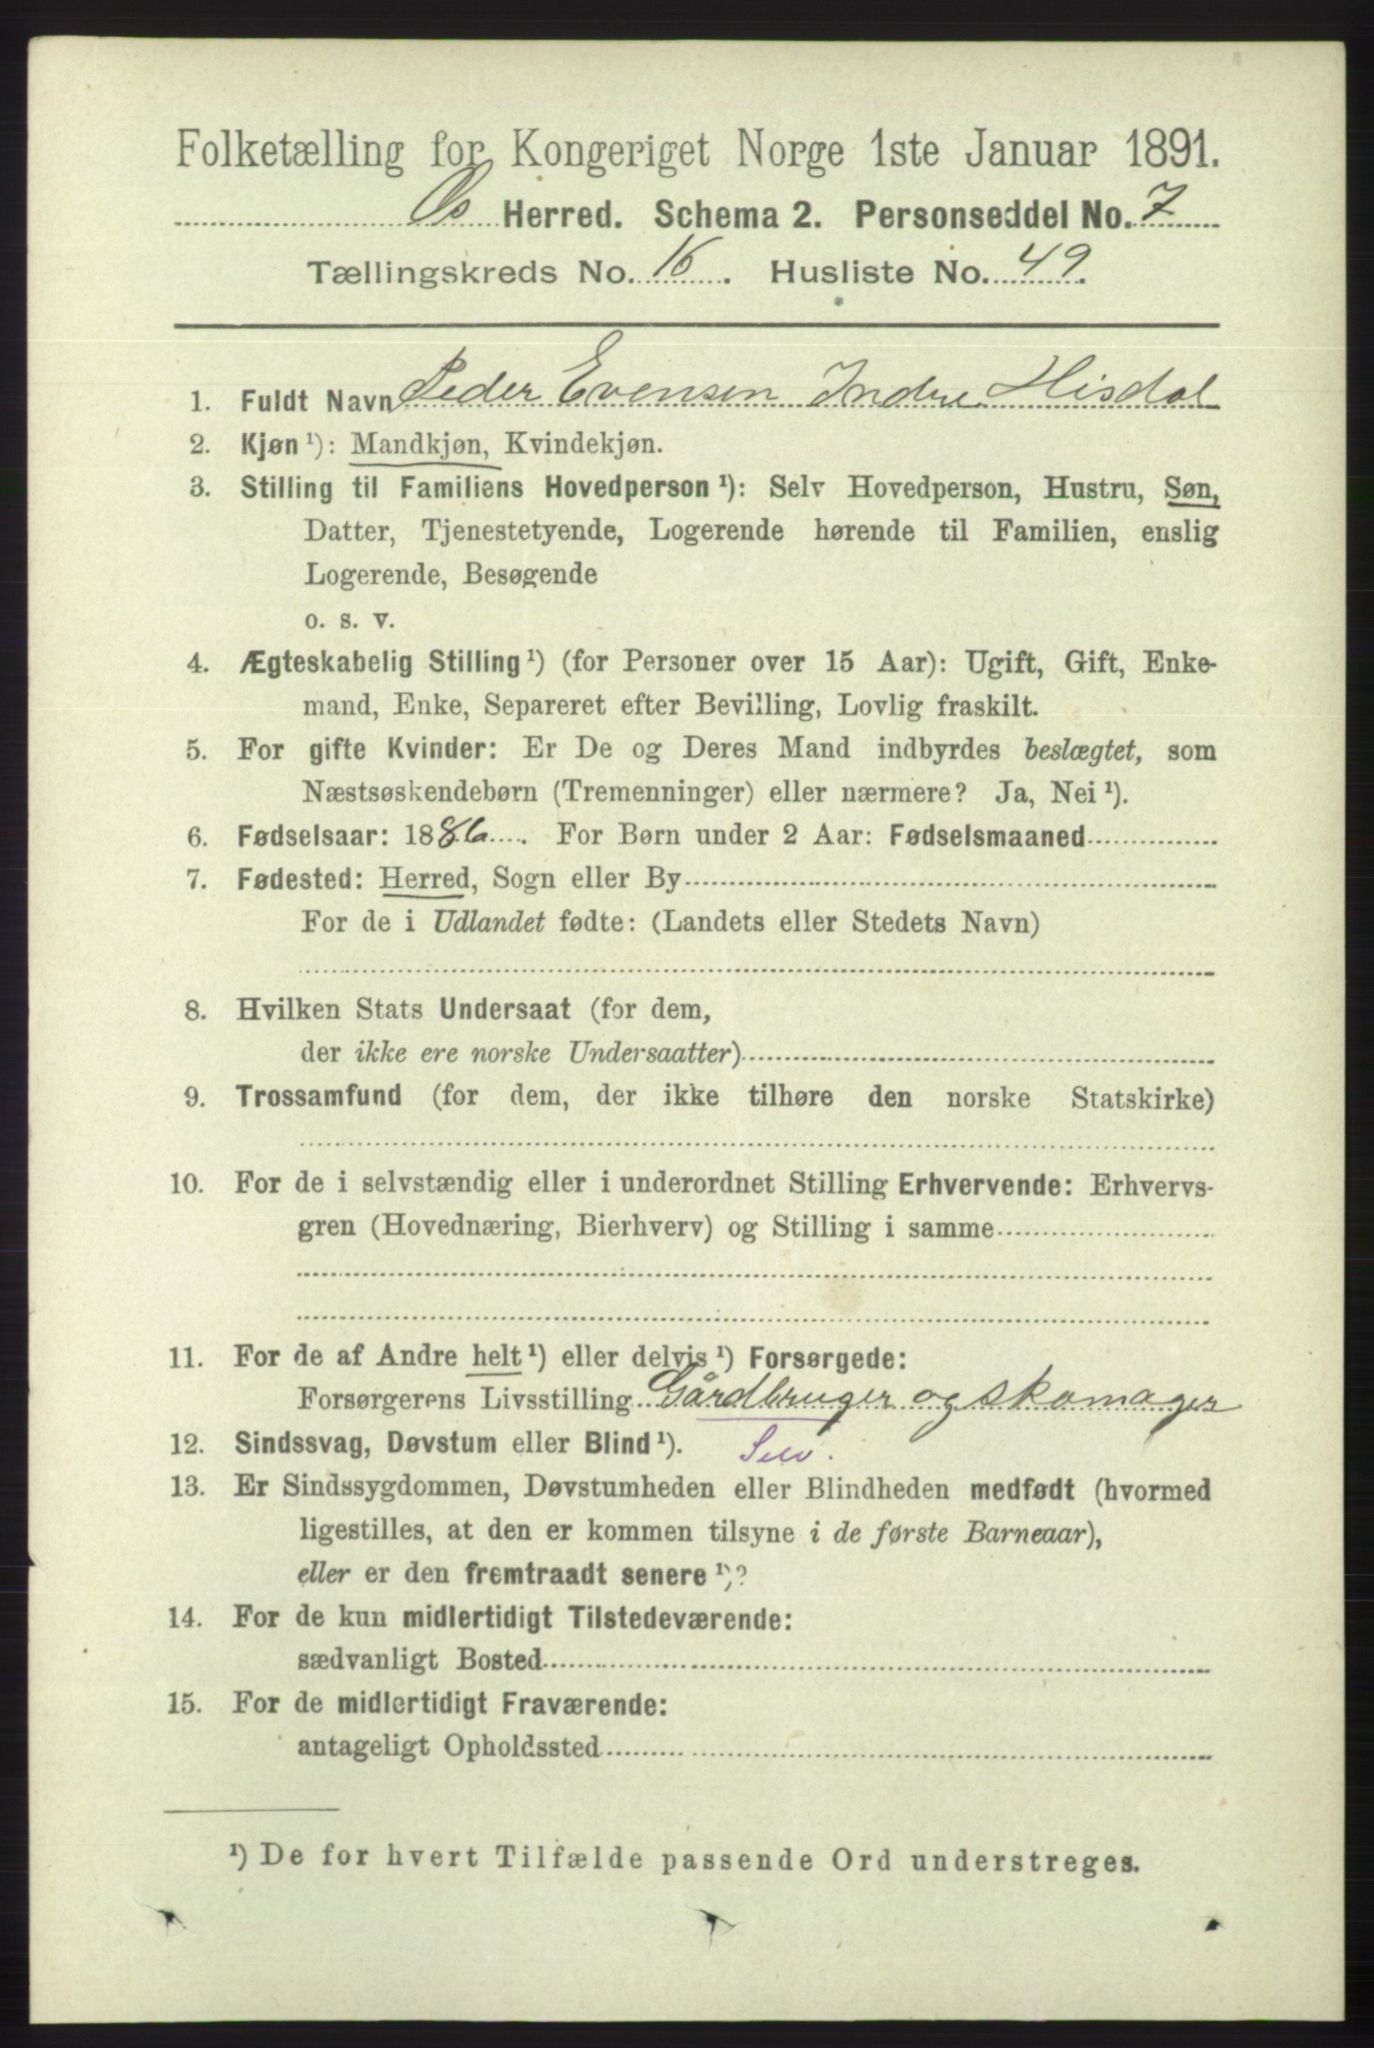 Folketælling for Kongeriget Norge 1ste Januar 1891.
Os Herred. Schema 2. Personseddel No. 7
Tællingskreds No. 16. Husliste No. 49.
1. Fuldt Navn Peder Evensen Indre Hisdal
2. Kjøn ¹): Mandkjøn, Kvindekjøn.
3. Stilling til Familiens Hovedperson ¹): Selv Hovedperson, Hustru, Søn,
Datter, Tjenestetyende, Logerende hørende til Familien, enslig
Logerende, Besøgende
o. s. v.
4. Ægteskabelig Stilling ¹) (for Personer over 15 Aar): Ugift, Gift, Enke-
mand, Enke, Separeret efter Bevilling, Lovlig fraskilt.
5. For gifte Kvinder: Er De og Deres Mand indbyrdes beslægtet, som
Næstsøskendebørn (Tremenninger) eller nærmere? Ja, Nei ¹).
6. Fødselsaar: 1886. For Børn under 2 Aar: Fødselsmaaned
7. Fødested: Herred, Sogn eller By
For de i Udlandet fødte: (Landets eller Stedets Navn)
8. Hvilken Stats Undersaat (for dem,
der ikke ere norske Undersaatter)
9. Trossamfund (for dem, der ikke tilhøre den norske Statskirke)
10. For de i selvstændig eller i underordnet Stilling Erhvervende: Erhvervs-
gren (Hovednæring, Bierhverv) og Stilling i samme
11. For de af Andre helt ¹) eller delvis ¹) Forsørgede:
Forsørgerens Livsstilling Gårdbruger og skomager
12. Sindssvag, Døvstum eller Blind ¹). Selv.
13. Er Sindssygdommen, Døvstumheden eller Blindheden medfødt (hvormed
ligestilles, at den er kommen tilsyne i de første Barneaar),
eller er den fremtraadt senere ¹)?
14. For de kun midlertidigt Tilstedeværende:
sædvanligt Bosted
15. For de midlertidigt Fraværende:
antageligt Opholdssted
¹) De for hvert Tilfælde passende Ord understreges.